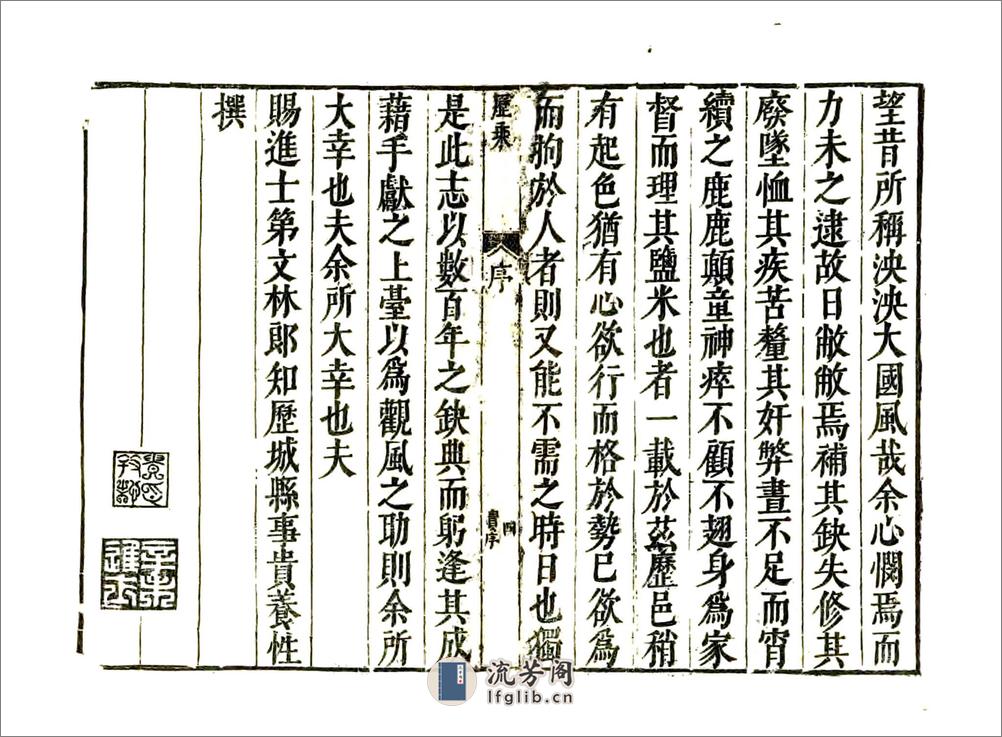 望昔所稱泱泱大國風哉余心憫焉而
力未之逮故日敝敝焉補其缺失修其
廢墜恤其疾苦釐其奸弊晝不足而宵
續之鹿鹿顛童神瘁不顧不翅身爲家
督而理其鹽米也者一載於茲歷邑稍
有起色猶有心欲行而格於勢巳欲爲
而朐於人者則又能不需之時日也獨
歷乘
序
四
貴序
是此志以數百年之缺典而躬逢其成
藉手獻之上臺以爲觀風之助則余所
大幸也夫余所大幸也夫
賜進士第文林郎知歷城縣事貴養性
撰
辛未進士
流芳阁
lfglib.cn